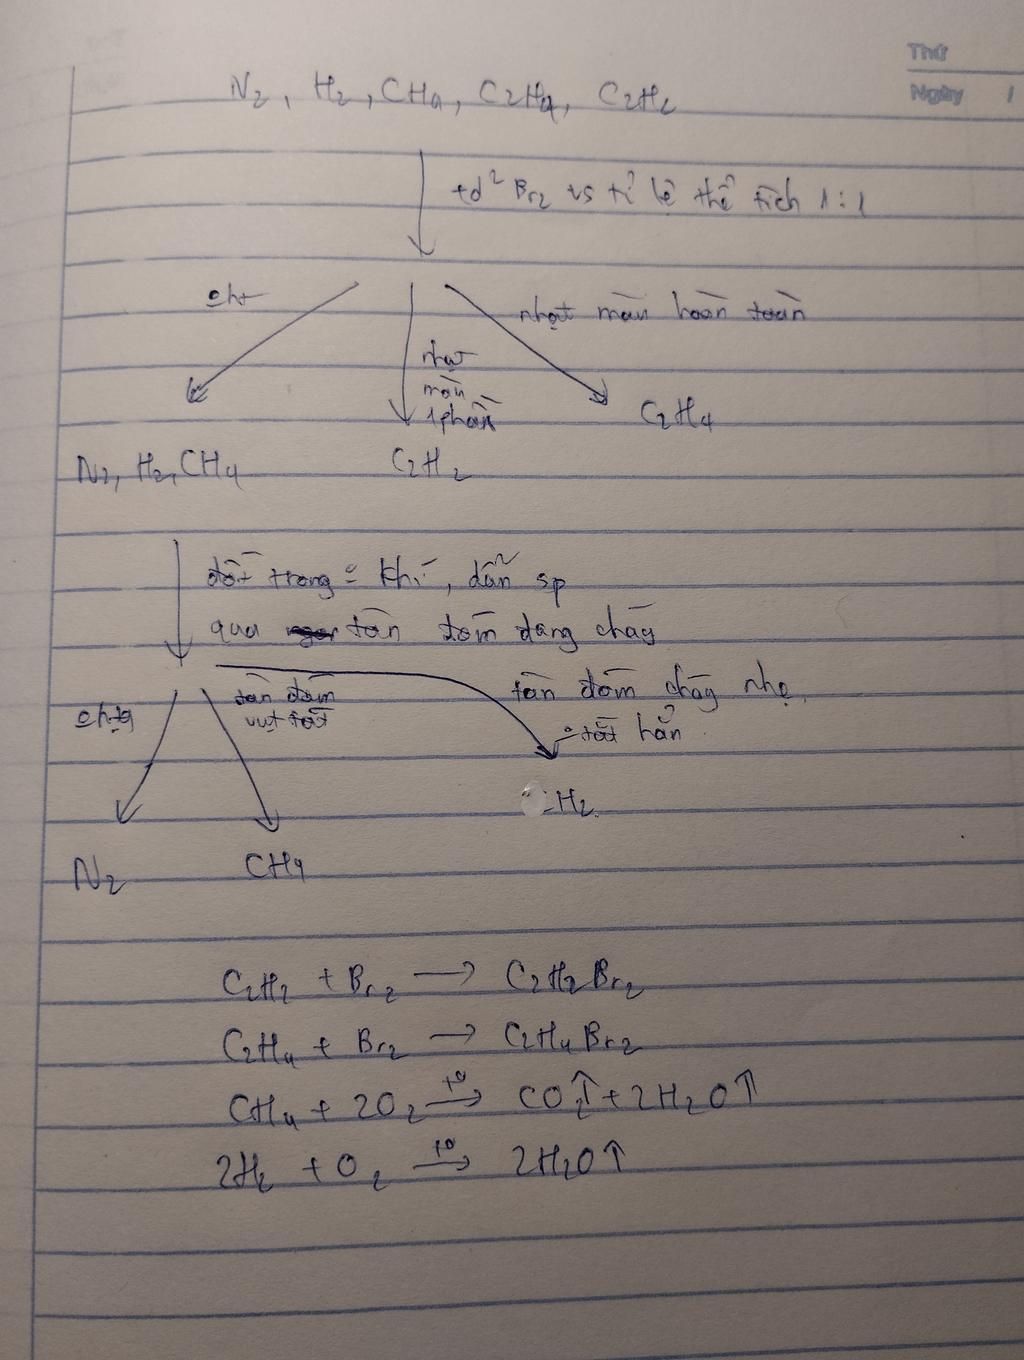 Thứ
Ngày /
N2, H2, CH4, C2H4, C2H2
+d² Br2 vs tỉ lệ thể tích 1:1
nhạt màu hoàn toàn
nhạt
màu
1 phần
C2H4
N2, H2, CH4 C2H2
đốt trong khí, dẫn sp
qua tàn đóm đang cháy
tàn đóm
vụt tắt
tàn đóm cháy nhẹ,
tắt hẳn
H2
N2 CH4
C2H2 + Br2 → C2H2Br2
C2H4 + Br2 → C2H4Br2
CH4 + 2O2 →(t°) CO2↑ + 2H2O↑
2H2 + O2 →(t°) 2H2O↑